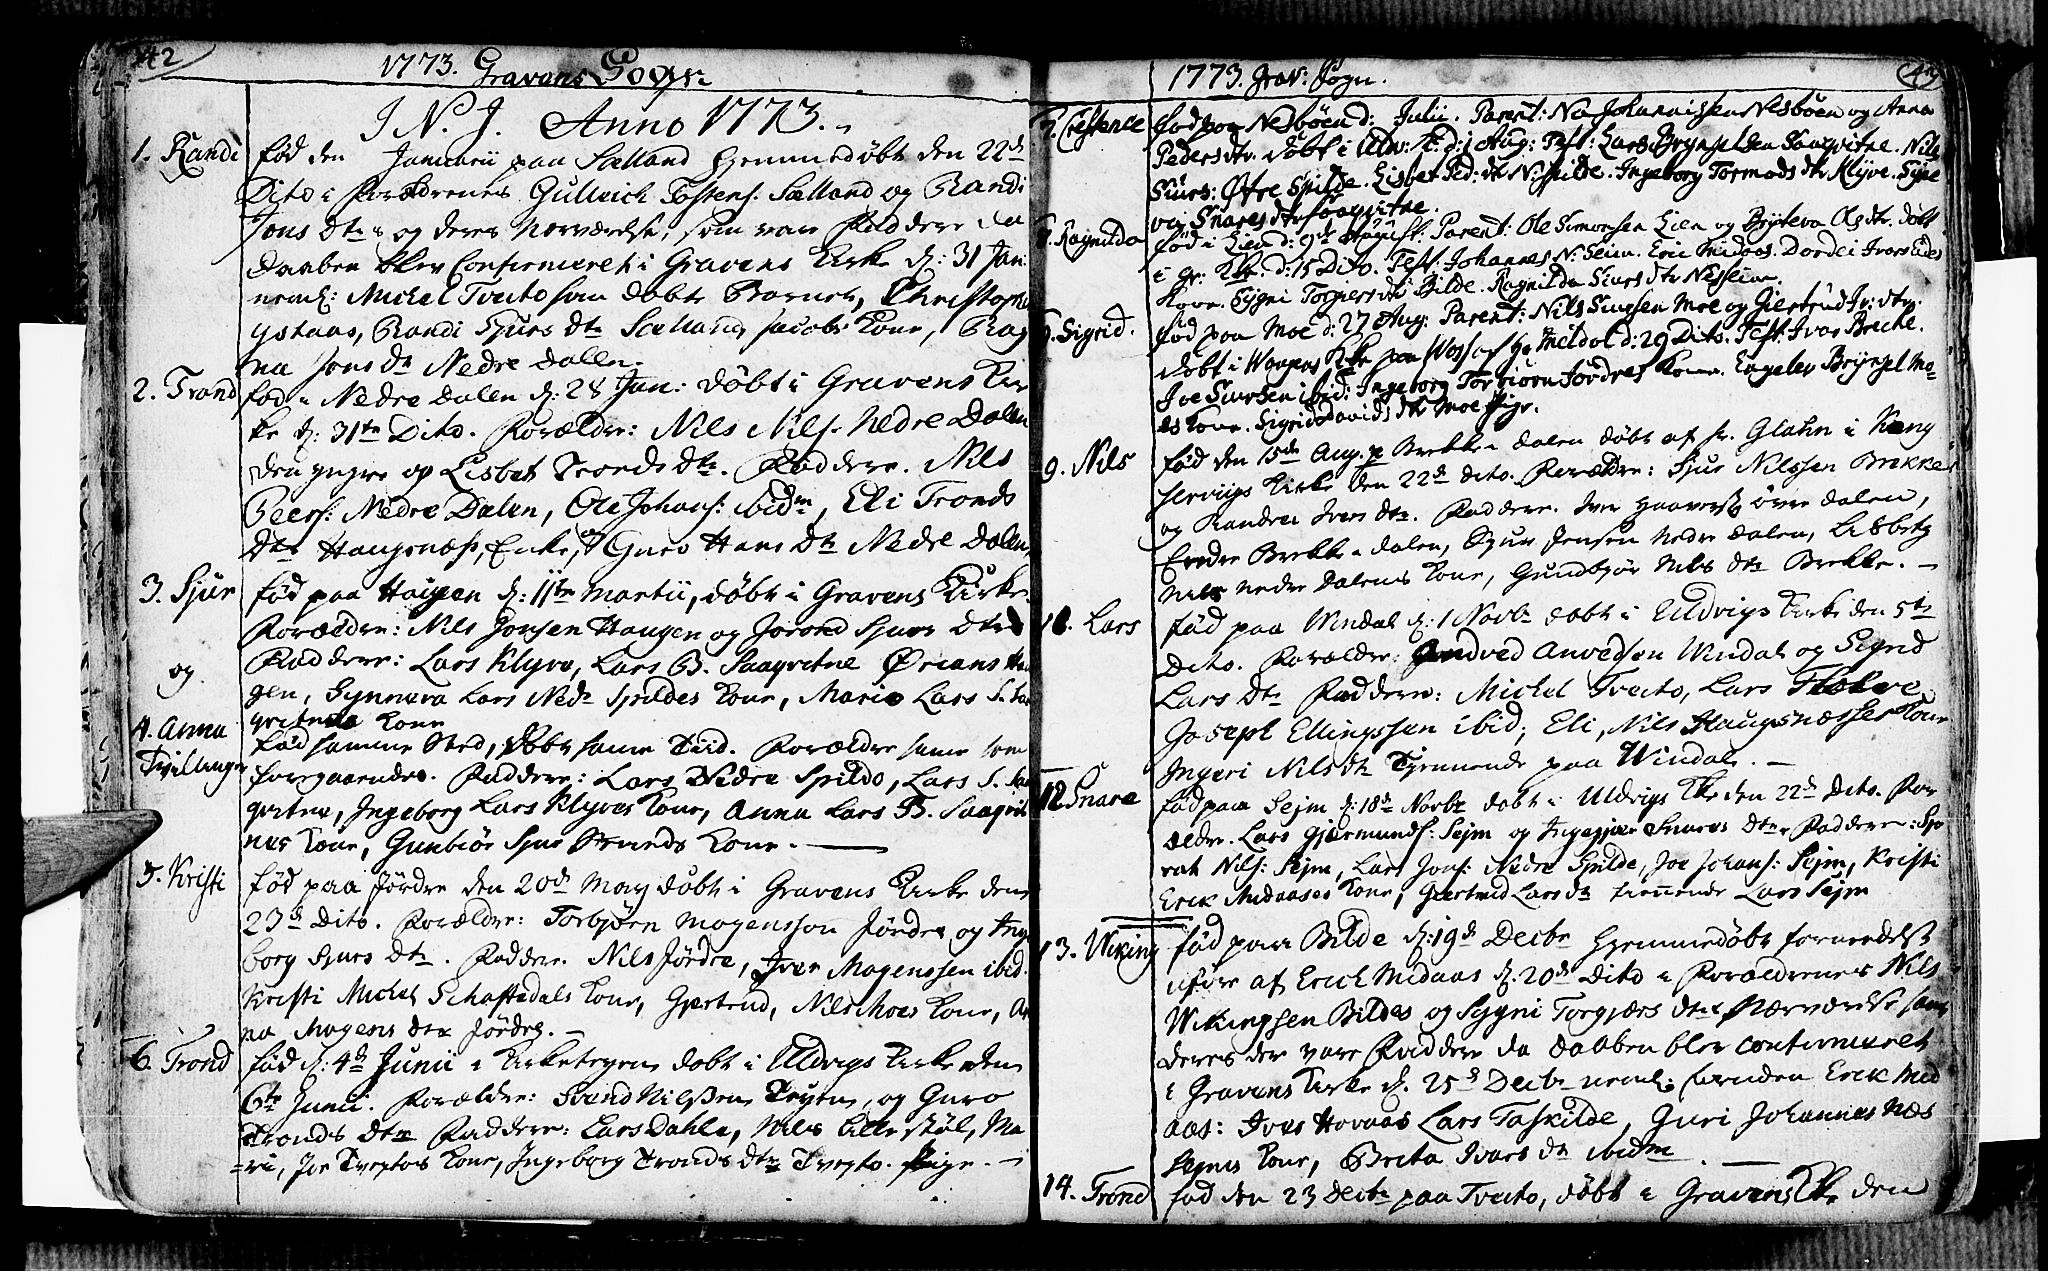 42
1773. Gravens Sogn:
I. N. J. Anno 1773.
1. Randi
fød den Januarii paa Sælland hjemmedøbt den 22d
Dito i Forældrenes Gullech Tostens: Sælland og Randi
Jons dtr og deres nærværelse, som vare Faddere da
Daaben blev Confirmeret i Gravens Kirke d: 31 Jan:
neml: Michel Tveito som døbte Barnet, Christopher
ystaas, Randi Sjurs dtr Sælland, Jacobs Kone, Rag
na Jons dtr Nedre Dalen.
2. Trond
fød i Nedre Dalen d: 28 Jan: døbt i Gravens Kir
ke d: 31te Dito. Forældre: Nils Nils: Nedre Dalen
den yngre og Lisbet Tronds dtr. Faddere. Nils
Peers: Nedre Dalen, Ole Johans: ibidm, Eli Tronds
Dtr Haugsnæss, Enke, og Guro Hans Dtr Nedre Dalen,
3. Sjur
fød paa Haugen d: 11te Martii, døbt i Gravens Kirke.
Forældre: Nils Jonsen Haugen og Jorond Sjurs Dtr
Faddere: Lars Klyve, Lars B. Saaqvitne Ørians Hau
og
gen, Synneva Lars Nedr Spildes Kone, Marie Lars S. Saa
qvitnes Kone
4. Anna
Tvillinger
fød samme Sted, døbt same Tiid. Forældre same som
foregaaende. Faddere: Lars Nedre Spilde, Lars S. Saa
qvitne, Ingeborg Lars Klyves Kone, Anna Lars B. Saaqvit
nes Kone, Gunbiør Sjur Kone. —
5. Kristi
fød paa Jørdre den 20d May døbt i Gravens Kirke den
23d Dito. Forældre: Torbjørn Mogensson Jørdre og Inge
borg Sjurs dtr. Faddere. Nils Jørdre, Iver Mogenssen ibid.
Kristi Michel Schaftedals Kone, Gjertrud, Nils Moes Kone, An
na Mogens dtr Jørdre. —
6. Trond
fød d: 4d Junii i Kirketeyen døbt i Uldvigs Kirke den
6te Junii. Forældre: Svend Nilssen Teyen, og Guro
Tronds dtr Faddere: Lars Dahle, Nils Lillestøl, Ma
=ri, Joe Tveytos Kone, Ingeborg Tronds dtr Tveyto. Pige. —
43
1773. Grav: Sogn.
7. Cressence
fød paa Nesbøen d: Julii. Parent: Nils Johannissen Nesbøen og Anna
Peders dtr. døbt i Ulv: K: d: 1 Aug: Test: Lars Brynjelsen Saaqvitne. Nils
Siurs: Øfre Spilde. Lisbet Ped: dtr N: Spilde. Ingeborg Tormods dtr Klyve. Syne
ve Snares dtr Saaqvitne.
8. Ragnilda
fød i Lien d: 9de August. Parent: Ole Simonsen Lien og Bryteva Ols dtr. døbt
i Gr: Kke. d: 15 Dito. Test. Johannes N: Seim. Eric Midaas. Dordei Ivars Lies
Kone. Sygni Torgiers dtr Bilde. Ragnilda Siurs dtr Nesseim.
9. Sigrid.
fød paa Moe d: 27 Aug: Parent: Nils Siursen Moe og Giertrud Iv: dtr.
døbt i Wangens Kke paa Woss af Hr Meldal d: 29 Dito. Test. Ivar Breche.
Joe Siursen ibid: Ingeborg Torbiørn Jordres Kone. Engelev Brynjel Mo-
es Kone. Sigrid Davids dtr Moe Pige.
9. Nils
fød den 15de Aug. p Brekke i Dalen døbt af hr. Glahn i Kong
servigs Kirke den 22d dito. Forældre: Sjur Nilssen Brekke
og Randve Ivers dtr. Faddere. Iver Haavers: øvre Dalen,
Endre Brekke i Dalen, Sjur Jensen Nedre Dalen, Libbeth
Nils Nedre Dalens Kone, Gundbjør Nils Dtr Brekke. —
10. Lars
fød paa Windal d: 1 Novbr døbt i Uldvigs Kirke den 5te
Dito. Forældre: Amvedsen Windal og Sigrid
Lars Dtr Faddere: Michel Tveito, Lars
Joseph Ellingssen ibid, Eli, Nils Haugsnæsses Kone
Ingeri Nils dtr Tjennende paa Windal. —
12 Snare
fød paa Sejm d: 18d Novbr døbt i Uldvigs Kke den 22d Dito. For
ældre. Lars Gjermunds: Sejm og Ingebjør Snares Dtr Faddere: Sjo
vat Nils: Sejm, Lars Jons: Nedre Spilde, Joe Johans: Sejm, Kristi
Erik Midaases Kone, Gjertrud Lars Dtr tienende Lars Sejm
13. Wiking
fød paa Bilde d: 19d Decbr Hjemmedøbt fornædelst
uføre af Erich Midaas d. 20d Dito i Forældrenes Nils
Wikingsen Bildes og Sygni Torgjærs dtr Nærværelse samt
deres der vare Faddere da Daaben blev confirmeret
i Gravens Kirke d. 25d Decbr neml: foruden Erik Mid
aas: Ivar Hovaas Lars Taskilde, Guri Johannes Næs
hejms Kone, Brita Ivars Dtr ibidm. —
14. Trond
fød den 23 Decbr paa Tveito, døbt i Gravens Kke den